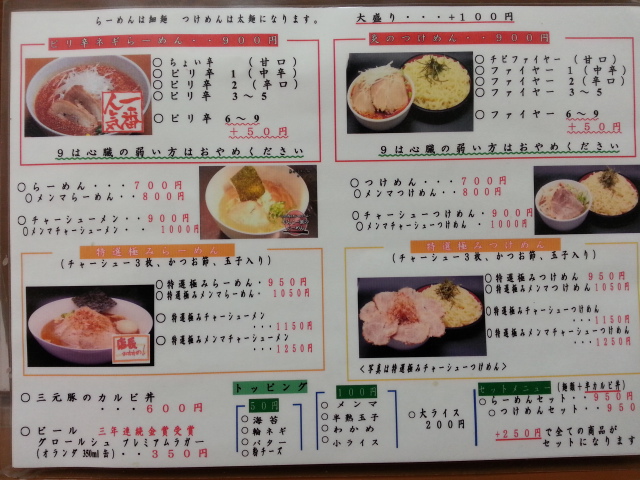 らーめんは細麺 つけめんは太麺になります。
大盛り・・・+100円
ピリ辛ネギらーめん・・900円
○ちょい辛 (甘口)
○ピリ辛 1 (中辛)
○ピリ辛 2 (辛口)
○ピリ辛 3〜5
○ピリ辛 6〜9
+50円
一番人気
9は心臓の弱い方はおやめください
炎のつけめん・・・900円
○チビファイヤー (甘口)
○ファイヤー 1 (中辛)
○ファイヤー 2 (辛口)
○ファイヤー 3〜5
○ファイヤー 6〜9
+50円
9は心臓の弱い方はおやめください
○らーめん・・・700円
○メンマらーめん・・800円
○チャーシューメン・・900円
○メンマチャーシューメン・・1000円
○つけめん・・・700円
○メンマつけめん・・800円
○チャーシューつけめん・・900円
○メンマチャーシューつけめん・・1000円
特選極みらーめん
(チャーシュー3枚、かつお節、玉子入り)
○特選極みらーめん・950円
○特選極みメンマらーめん・1050円
○特選極みチャーシューメン
・・・1150円
○特選極みメンマチャーシューメン
・・・1250円
特選極みつけめん
(チャーシュー3枚、かつお節、玉子入り)
○特選極みつけめん 950円
○特選極みメンマつけめん 1050円
○特選極みチャーシューつけめん
・・・1150円
○特選極みメンマチャーシューつけめん
・・・1250円
<写真は特選極みチャーシューつけめん>
○三元豚のカルビ丼
・・・600円
○ビール 三年連続金賞受賞
グロールシュ プレミアムラガー
(オランダ 350ml 缶)・・350円
トッピング
50円
○海苔
○輪ネギ
○バター
○粉チーズ
100円
○メンマ
○半熟玉子
○わかめ
○小ライス
○大ライス
200円
セットメニュー (麺類+半カルビ丼)
○らーめんセット・・950円
○つけめんセット・・950
+250円で全ての商品が
セットになります